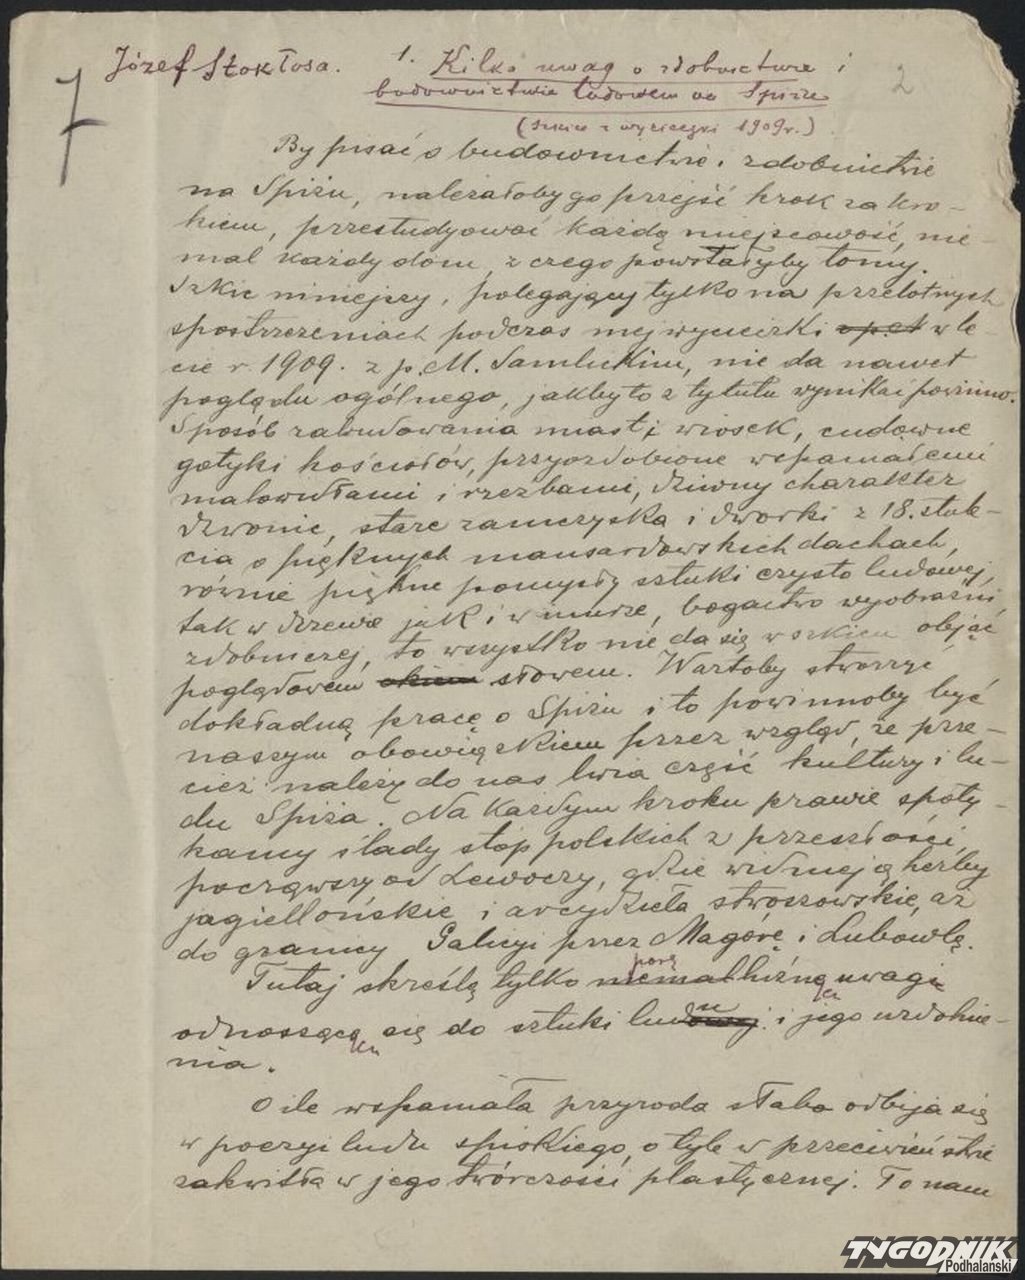 7
Józef Stokłosa.
1. Kilka uwag o zdobnictwie i
2
budownictwie ludowem na Spiżu
(szkice z wycieczki 1909 r.)
By pisać o budownictwie i zdobnictwie
na Spiżu, należałoby go przejść krok za kro-
kiem, przestudyować każdą miejscowość, nie-
mal każdy dom, z czego powstałyby tomy.
Szkic niniejszy, polegający tylko na przelotnych
spostrzeżeniach podczas mej wycieczki w le
cie r. 1909. z p. M. Samlickim, nie da nawet
poglądu ogólnego, jakby to z tytułu wynikać powinno.
Sposób zabudowania miast i wiosek, cudowne
gotyki kościołów, przyozdobione wspaniałemi
malowidłami i rzeźbami, dziwny charakter
dzwonic, stare zamczyska i dworki z 18. stule-
cia o pięknych mansardowskich dachach,
równie piękne pomysły sztuki czysto ludowej,
tak w drzewie jak i w murze, bogactwo wyobraźni
zdobniczej, to wszystko nie da się w szkicu objąć
poglądowem słowem. Wartoby stworzyć
dokładną pracę o Spiżu i to powinnoby być
naszym obowiązkiem przez wzgląd, że prze-
cież należy do nas lwia część kultury i lu-
du Spiża. Na każdym kroku prawie spoty-
kamy ślady stóp polskich z przeszłości,
począwszy od Lewoczy, gdzie widnieją herby
jagiellońskie i arcydzieła stwoszowskie, aż
do granicy Galicyi przez Magórę i Lubowlę.
Tutaj skreślę tylko parę uwag
odnoszących się do sztuki ludu i jego uzdolnie-
nia.
O ile wspaniała przyroda słabo odbija się
w poezyi ludu spiskiego, o tyle w przeciwieństwie
zakwitła w jego twórczości plastycznej. To nam
TYGODNIK
Podhalański